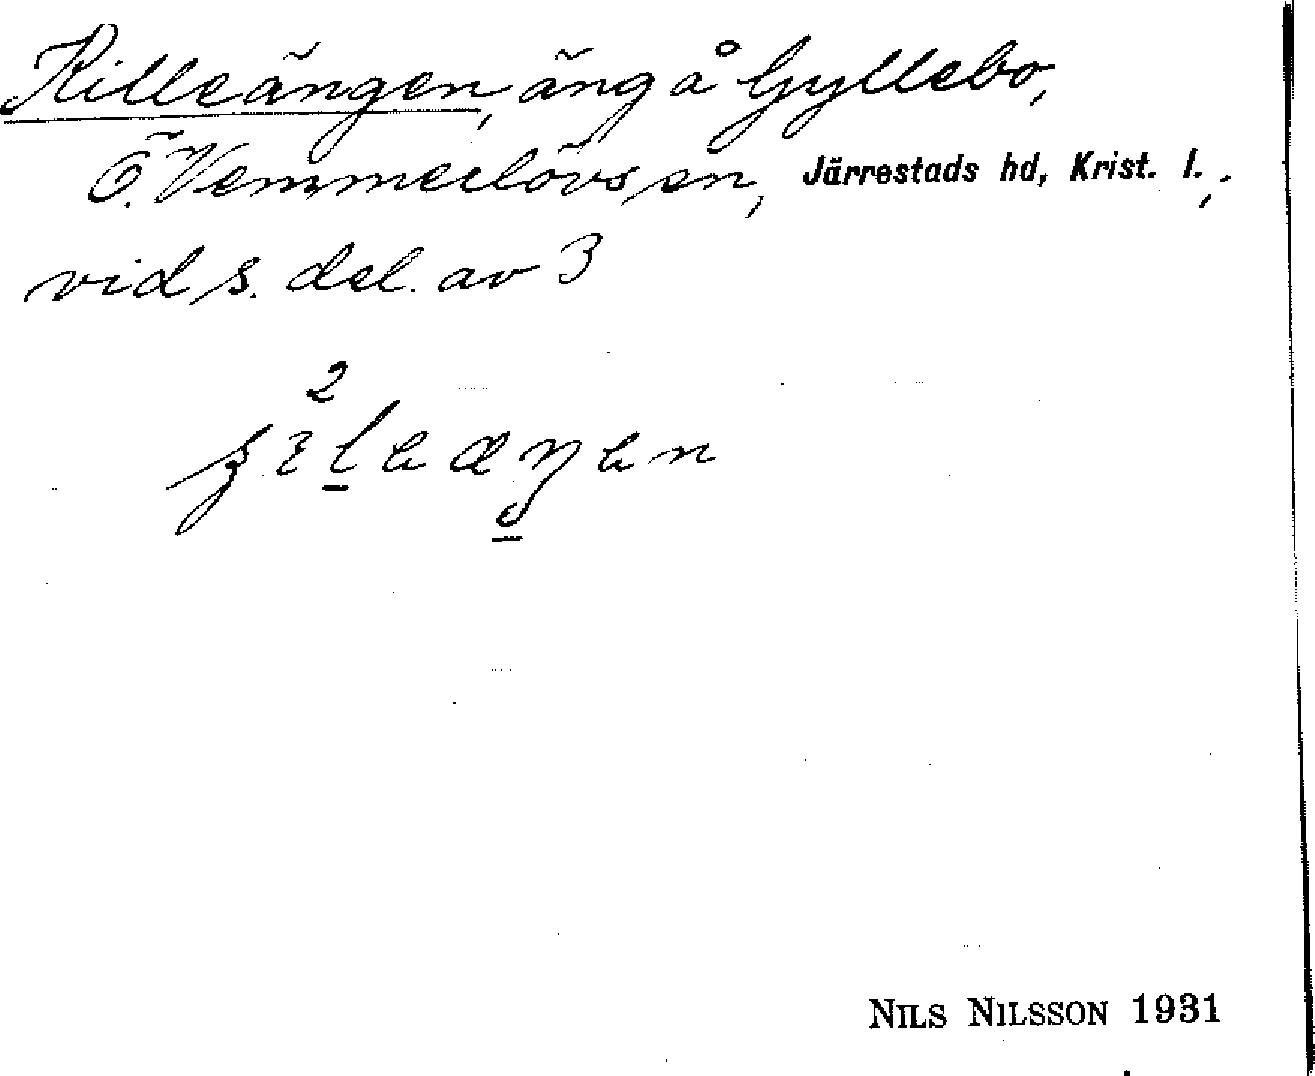 Killeängen, äng å Gyllebo,
Ö. Vemmerlövs sn, Järrestads hd, Krist. l.,
vid s. del. av 3
2
NILS NILSSON 1931